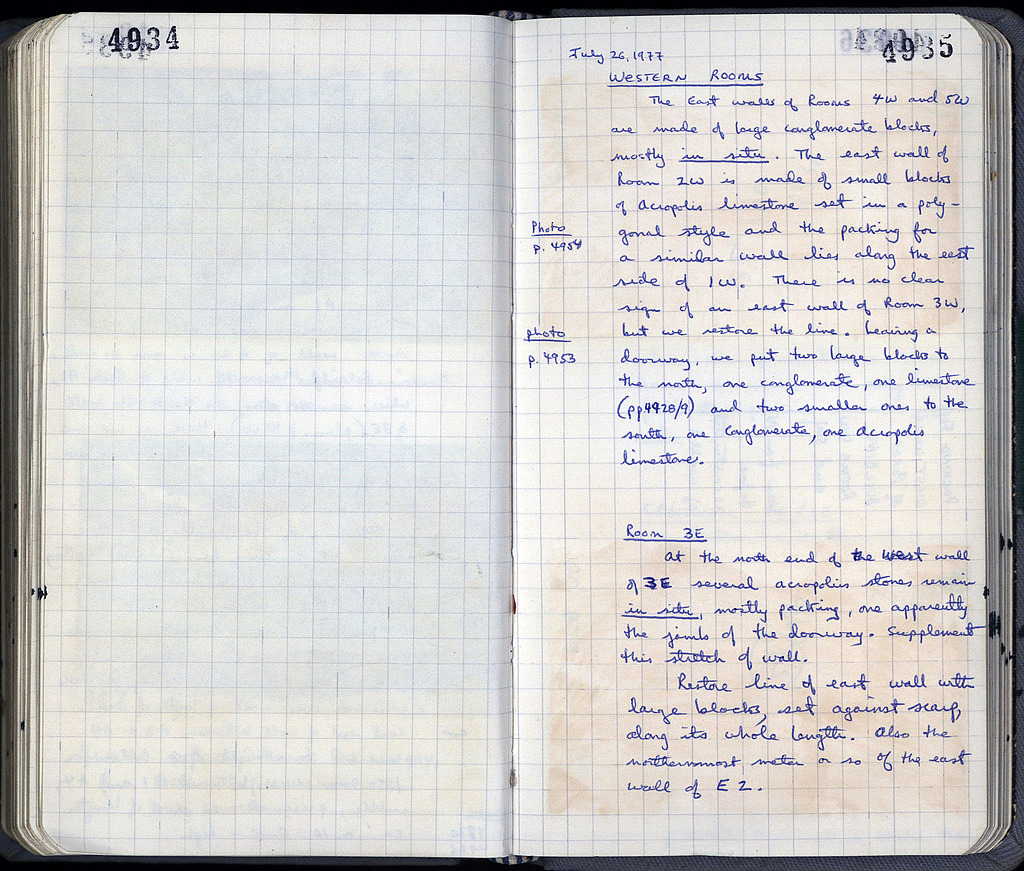 4934
4935
July 26, 1977
WESTERN ROOMS
The East walls of Rooms 4W and 5W
are made of large conglomerate blocks,
mostly in situ. The east wall of
Room 2W is made of small blocks
of Acropolis limestone set in a poly-
Photo
gonal style and the packing for
p. 4954
a similar wall lies along the east
side of 1W. There is no clear
sign of an east wall of Room 3W,
photo
but we restore the line. Leaving a
p. 4953
doorway, we put two large blocks to
the north, one conglomerate, one limestone
(pp4928/9) and two smaller ones to the
south, one conglomerate, one acropolis
limestone.
Room 3E
At the north end of the west wall
of 3E several acropolis stones remain
in situ, mostly packing, one apparently
the jamb of the doorway. Supplement
this stretch of wall.
Restore line of east wall with
large blocks, set against scarp,
along its whole length. Also the
northernmost meter or so of the east
wall of E2.